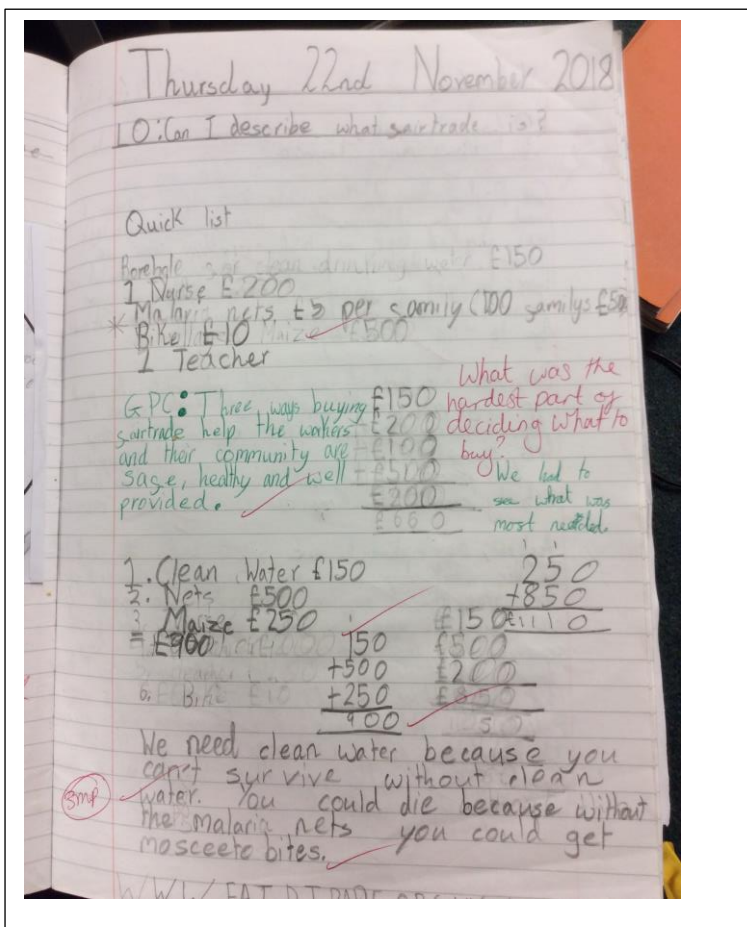 Thursday 22nd November 2018
LO: Can I describe what sairtrade is?
Quick list
Borehole sor clean drinking water £150
1 Nurse £200
Malaria nets £5 per samily (100 samilys £500
* Bike £10 Maize £500
1 Teacher
GPC: Three ways buying
sairtrade help the workers
and their community are
sase, healthy and well
provided.
£150
£200
£100
£500
£200
£660
What was the
hardest part of
deciding what to
buy?
We had to
see what was
most needed.
1. Clean Water £150
2. Nets £500
3. Maize £250
£900
6. Bike £10
150
+500
+250
900
250
+850
£1110
£150
£500
£200
£850
50
We need clean water because you
can't survive without clean
water. You could die because without
the malaria nets you could get
mosceeto bites.
smp